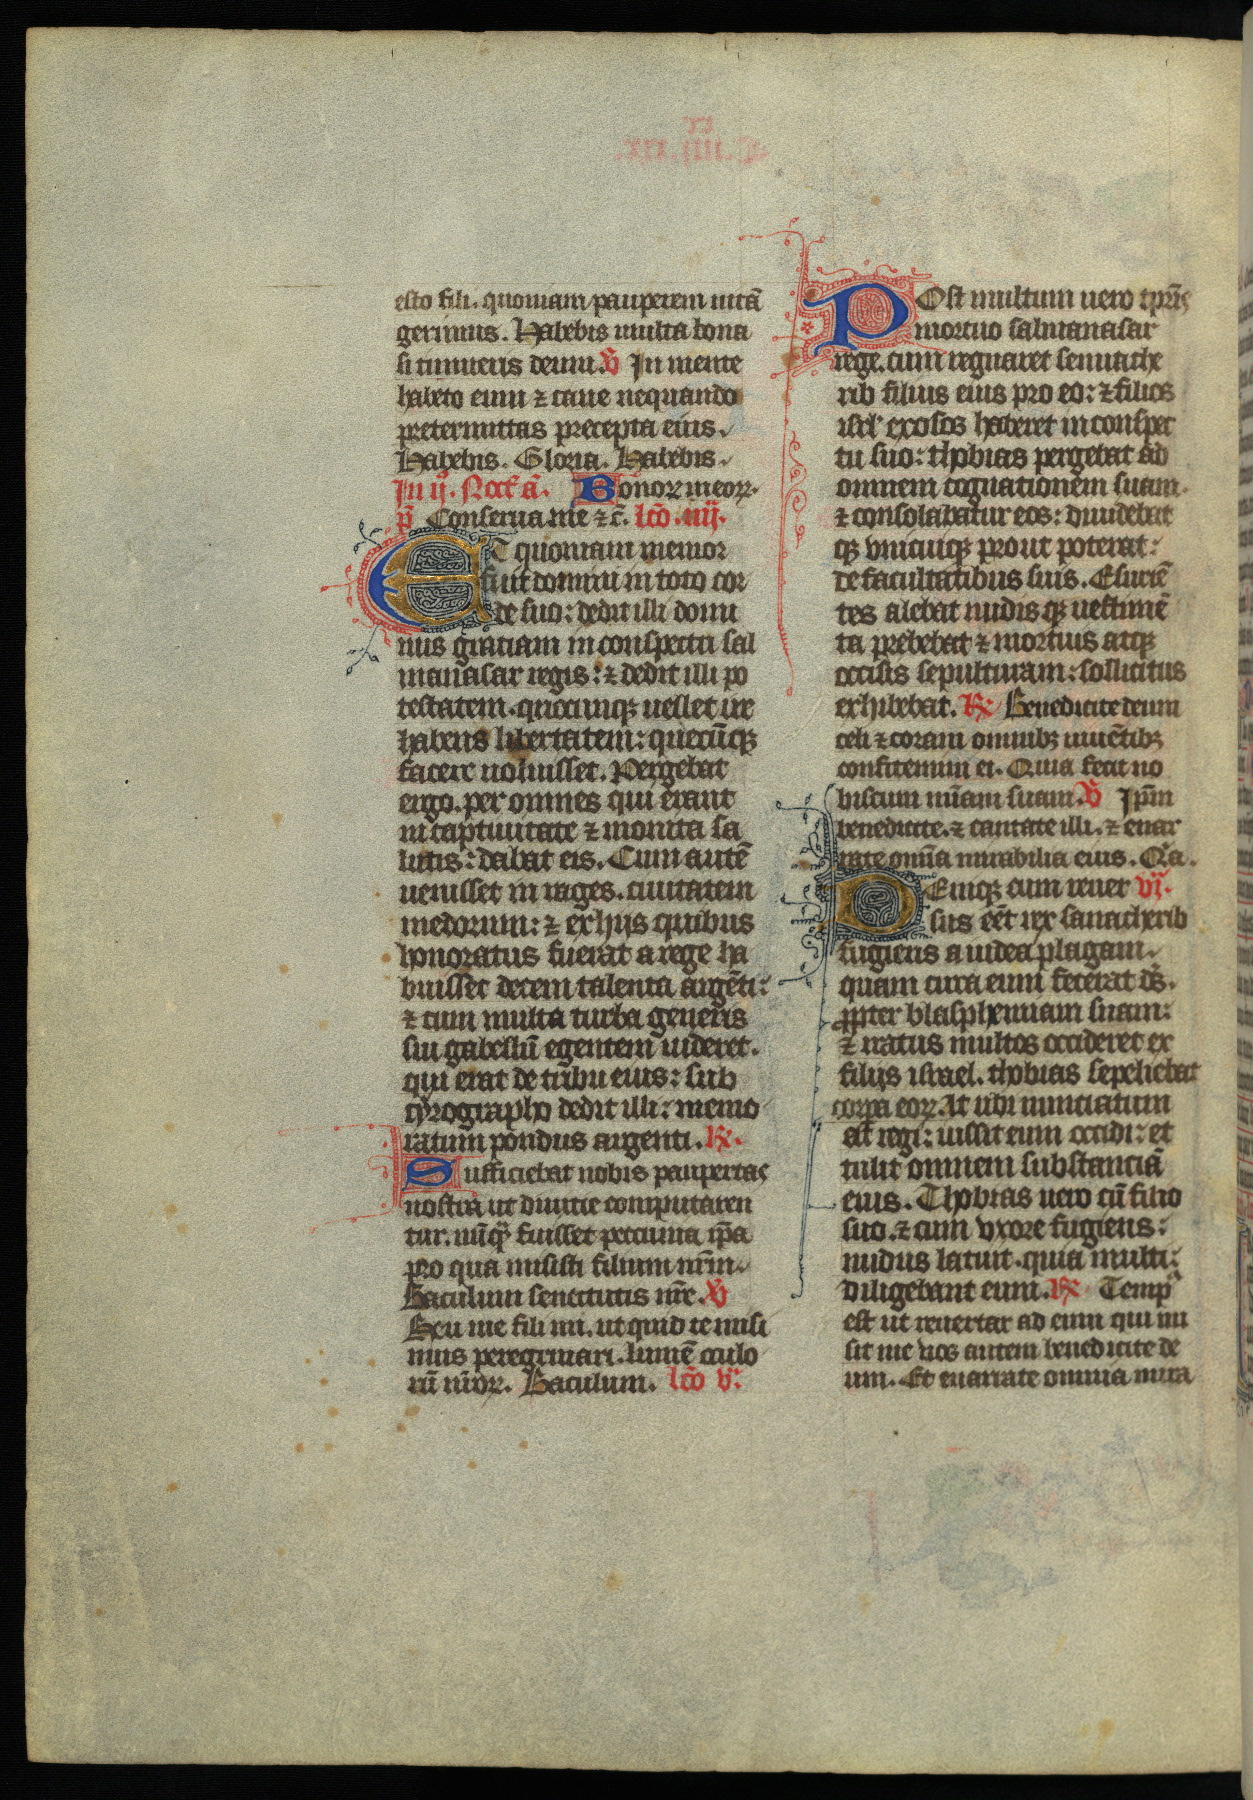 esto fili. quoniam pauperem uitã
gerimus. Habebis multa bona
si timueris deum. ℣ In mente
habeto eum ⁊ caue nequando
pretermittas precepta eius.
Habebis. Gloria. Habebis.
In ij. Noct̃ a᷃. Bonor̃ meoꝝ.
p̃s Conserua me ⁊c̃. lc̃o .iiij.
Et quoniam memor
fuit domini in toto cor
de suo: dedit illi domi
nus gratiam in conspectu sal
manasar regis: ⁊ dedit illi po
testatem. quocunqꝫ uellet ire
habens libertatem: quecũcqꝫ
facere uoluisset. Pergebat
ergo. per omnes qui erant
in captiuitate ⁊ monita sa
lutis: dabat eis. Cum autẽ
uenisset in rages. ciuitatem
medorum: ⁊ ex hijs quibus
honoratus fuerat a rege ha
buisset decem talenta argẽti:
⁊ cum multa turba generis
sui gabelũ egentem uideret.
qui erat de tribu eius: sub
cyrographo dedit illi: memo
ratum pondus argenti. ℟.
Sufficiebat nobis paupertas
nostra ut diuitie computaren
tur. nũqꝫ fuisset peccunia ip̃a
pro qua misisti filium nr̃m.
Baculum senectutis nr̃e. ℣
Heu me fili mi. ut quid te misi
mus peregrinari. lumẽ oculo
rũ nr̃oꝝ. Baculum. lc̃o v.
Post multum uero tp̃ris
mortuo salmanasar
rege. cum regnaret sennache
rib filius eius pro eo: ⁊ filios
isrl' exosos haberet in conspec
tu suo: thobias pergebat ad
omnem cognationem suam.
⁊ consolabatur eos: diuidebat
qꝫ vnicuiqꝫ prout poterat:
de facultatibus suis. Esuriẽ
tes alebat nudis qꝫ uestimẽ
ta prebebat ⁊ mortuis atqꝫ
occisis sepulturam: sollicitus
exhibebat. ℟ Benedicite deum
celi ⁊ coram omnibꝫ uiuẽtibꝫ
confitemini ei. Quia fecit no
biscum mĩam suam. ℣ Ip̃m
benedicite. ⁊ cantate illi. ⁊ enar
rate omĩa mirabilia eius. Q̃a.
Deniqꝫ cum reuer vi.
sus eẽt rex sanacherib
fugiens a iudea plagam.
quam circa eum fecerat dс̃.
ꝓpter blasphemiam suam:
⁊ iratus multos occideret ex
filijs israel. thobias sepeliebat
corpa eoꝝ. At ubi nunciatum
est regi: iussit eum occidi: et
tulit omnem substanciã
eius. Thobias uero cũ filio
suo. ⁊ cum vxore fugiens:
nudus latuit. quia multi:
diligebant eum. ℟ Temp᷒
est ut reuertar ad eum qui mi
sit me uos autem benedicite de
um. Et enarrate omnia mira